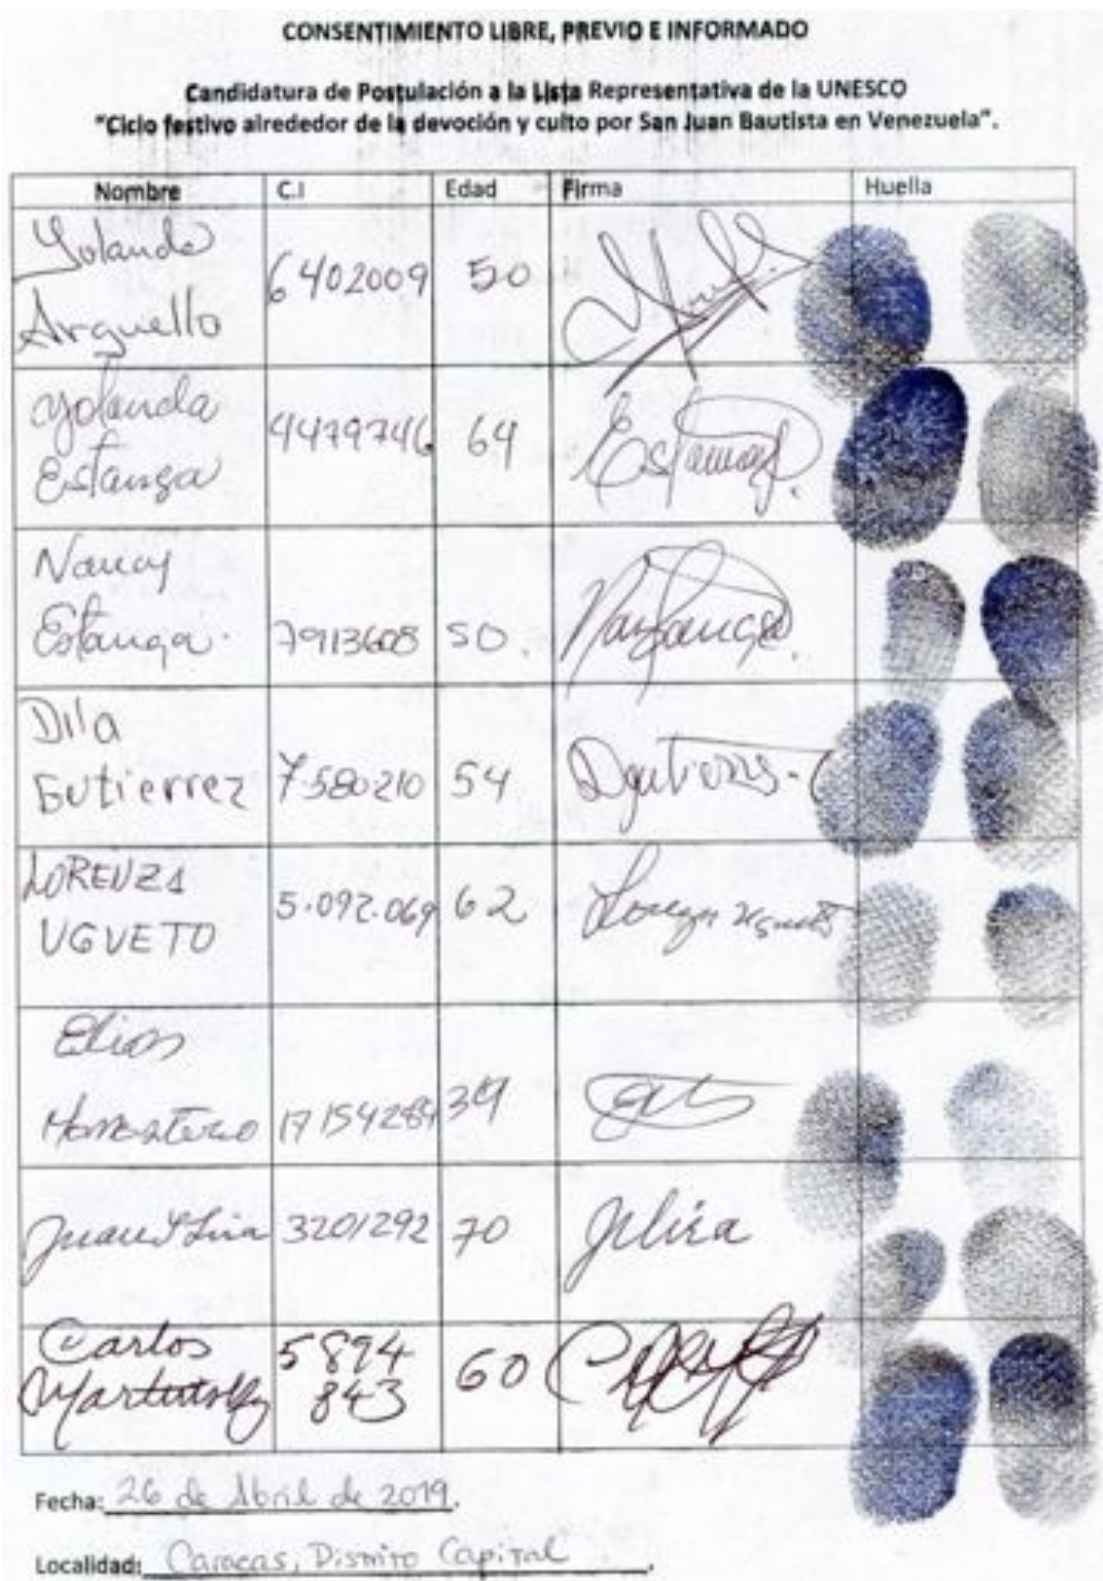 CONSENTIMIENTO LIBRE, PREVIO E INFORMADO
Candidatura de Postulación a la Lista Representativa de la UNESCO
"Ciclo festivo alrededor de la devoción y culto por San Juan Bautista en Venezuela".
Nombre C.I Edad Firma Huella
Yolanda
Arguello 6402009 50
Yolanda
Estanga 4479746 64 Estanga
Nancy
Estanga. 7913608 50.
Dila
Gutierrez 7.580.210 54
LORENZA
UGUETO 5.092.069 62 Lorenza Ugueto
Elias
Monasterio 17154284 34
Juan Liria 3201292 70 Jliria
Carlos 5894
843 60
Fecha: 26 de Abril de 2019.
Localidad: Caracas, Distrito Capital.